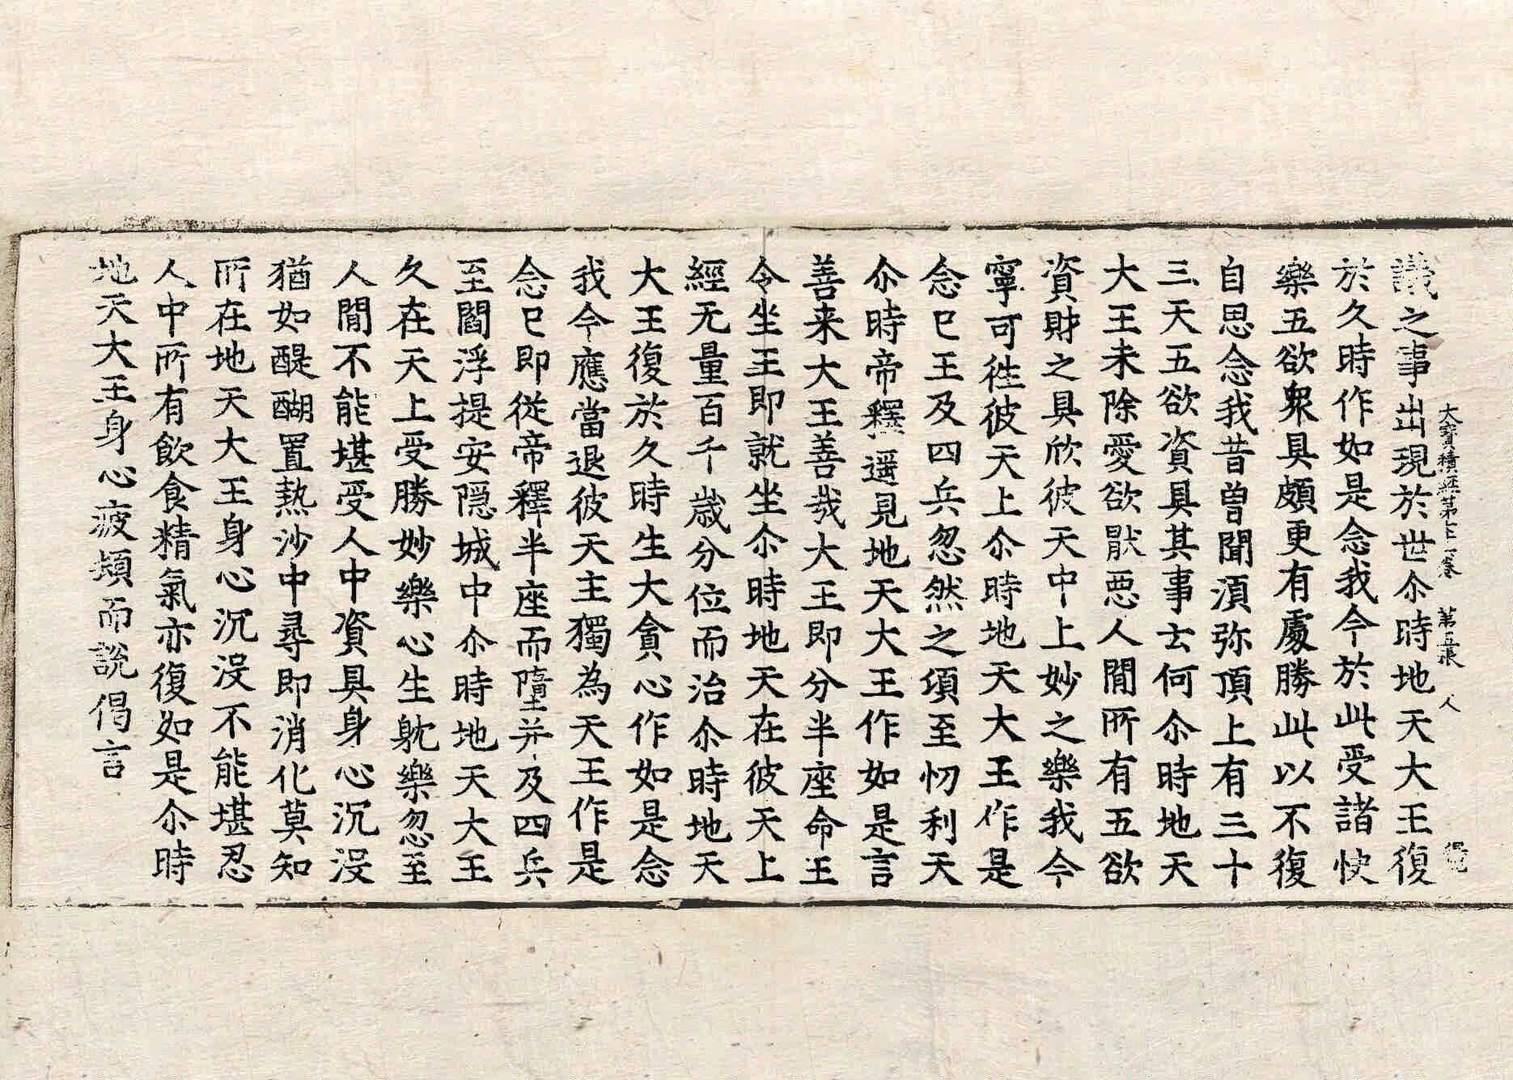 大寶積經第七十一卷 第五張 人
議之事出現於世尒時地天大王復
於久時作如是念我今於此受諸快
樂五欲衆具頗更有處勝此以不復
自思念我昔曾聞湏弥頂上有三十
三天五欲資具其事云何尒時地天
大王未除愛欲猒惡人閒所有五欲
資財之具欣彼天中上妙之樂我今
寧可徃彼天上尒時地天大王作是
念已王及四兵忽然之頃至忉利天
尒時帝釋遥見地天大王作如是言
善来大王善哉大王即分半座命王
令坐王即就坐尒時地天在彼天上
經无量百千歲分位而治尒時地天
大王復於久時生大貪心作如是念
我今應當退彼天主獨為天王作是
念已即從帝釋半座而墮并及四兵
至閻浮提安隱城中尒時地天大王
久在天上受勝妙樂心生躭樂忽至
人閒不能堪受人中資具身心沉没
猶如醍醐置熱沙中尋即消化莫知
所在地天大王身心沉没不能堪忍
人中所有飲食精氣亦復如是尒時
地天大王身心疲頓而說偈言